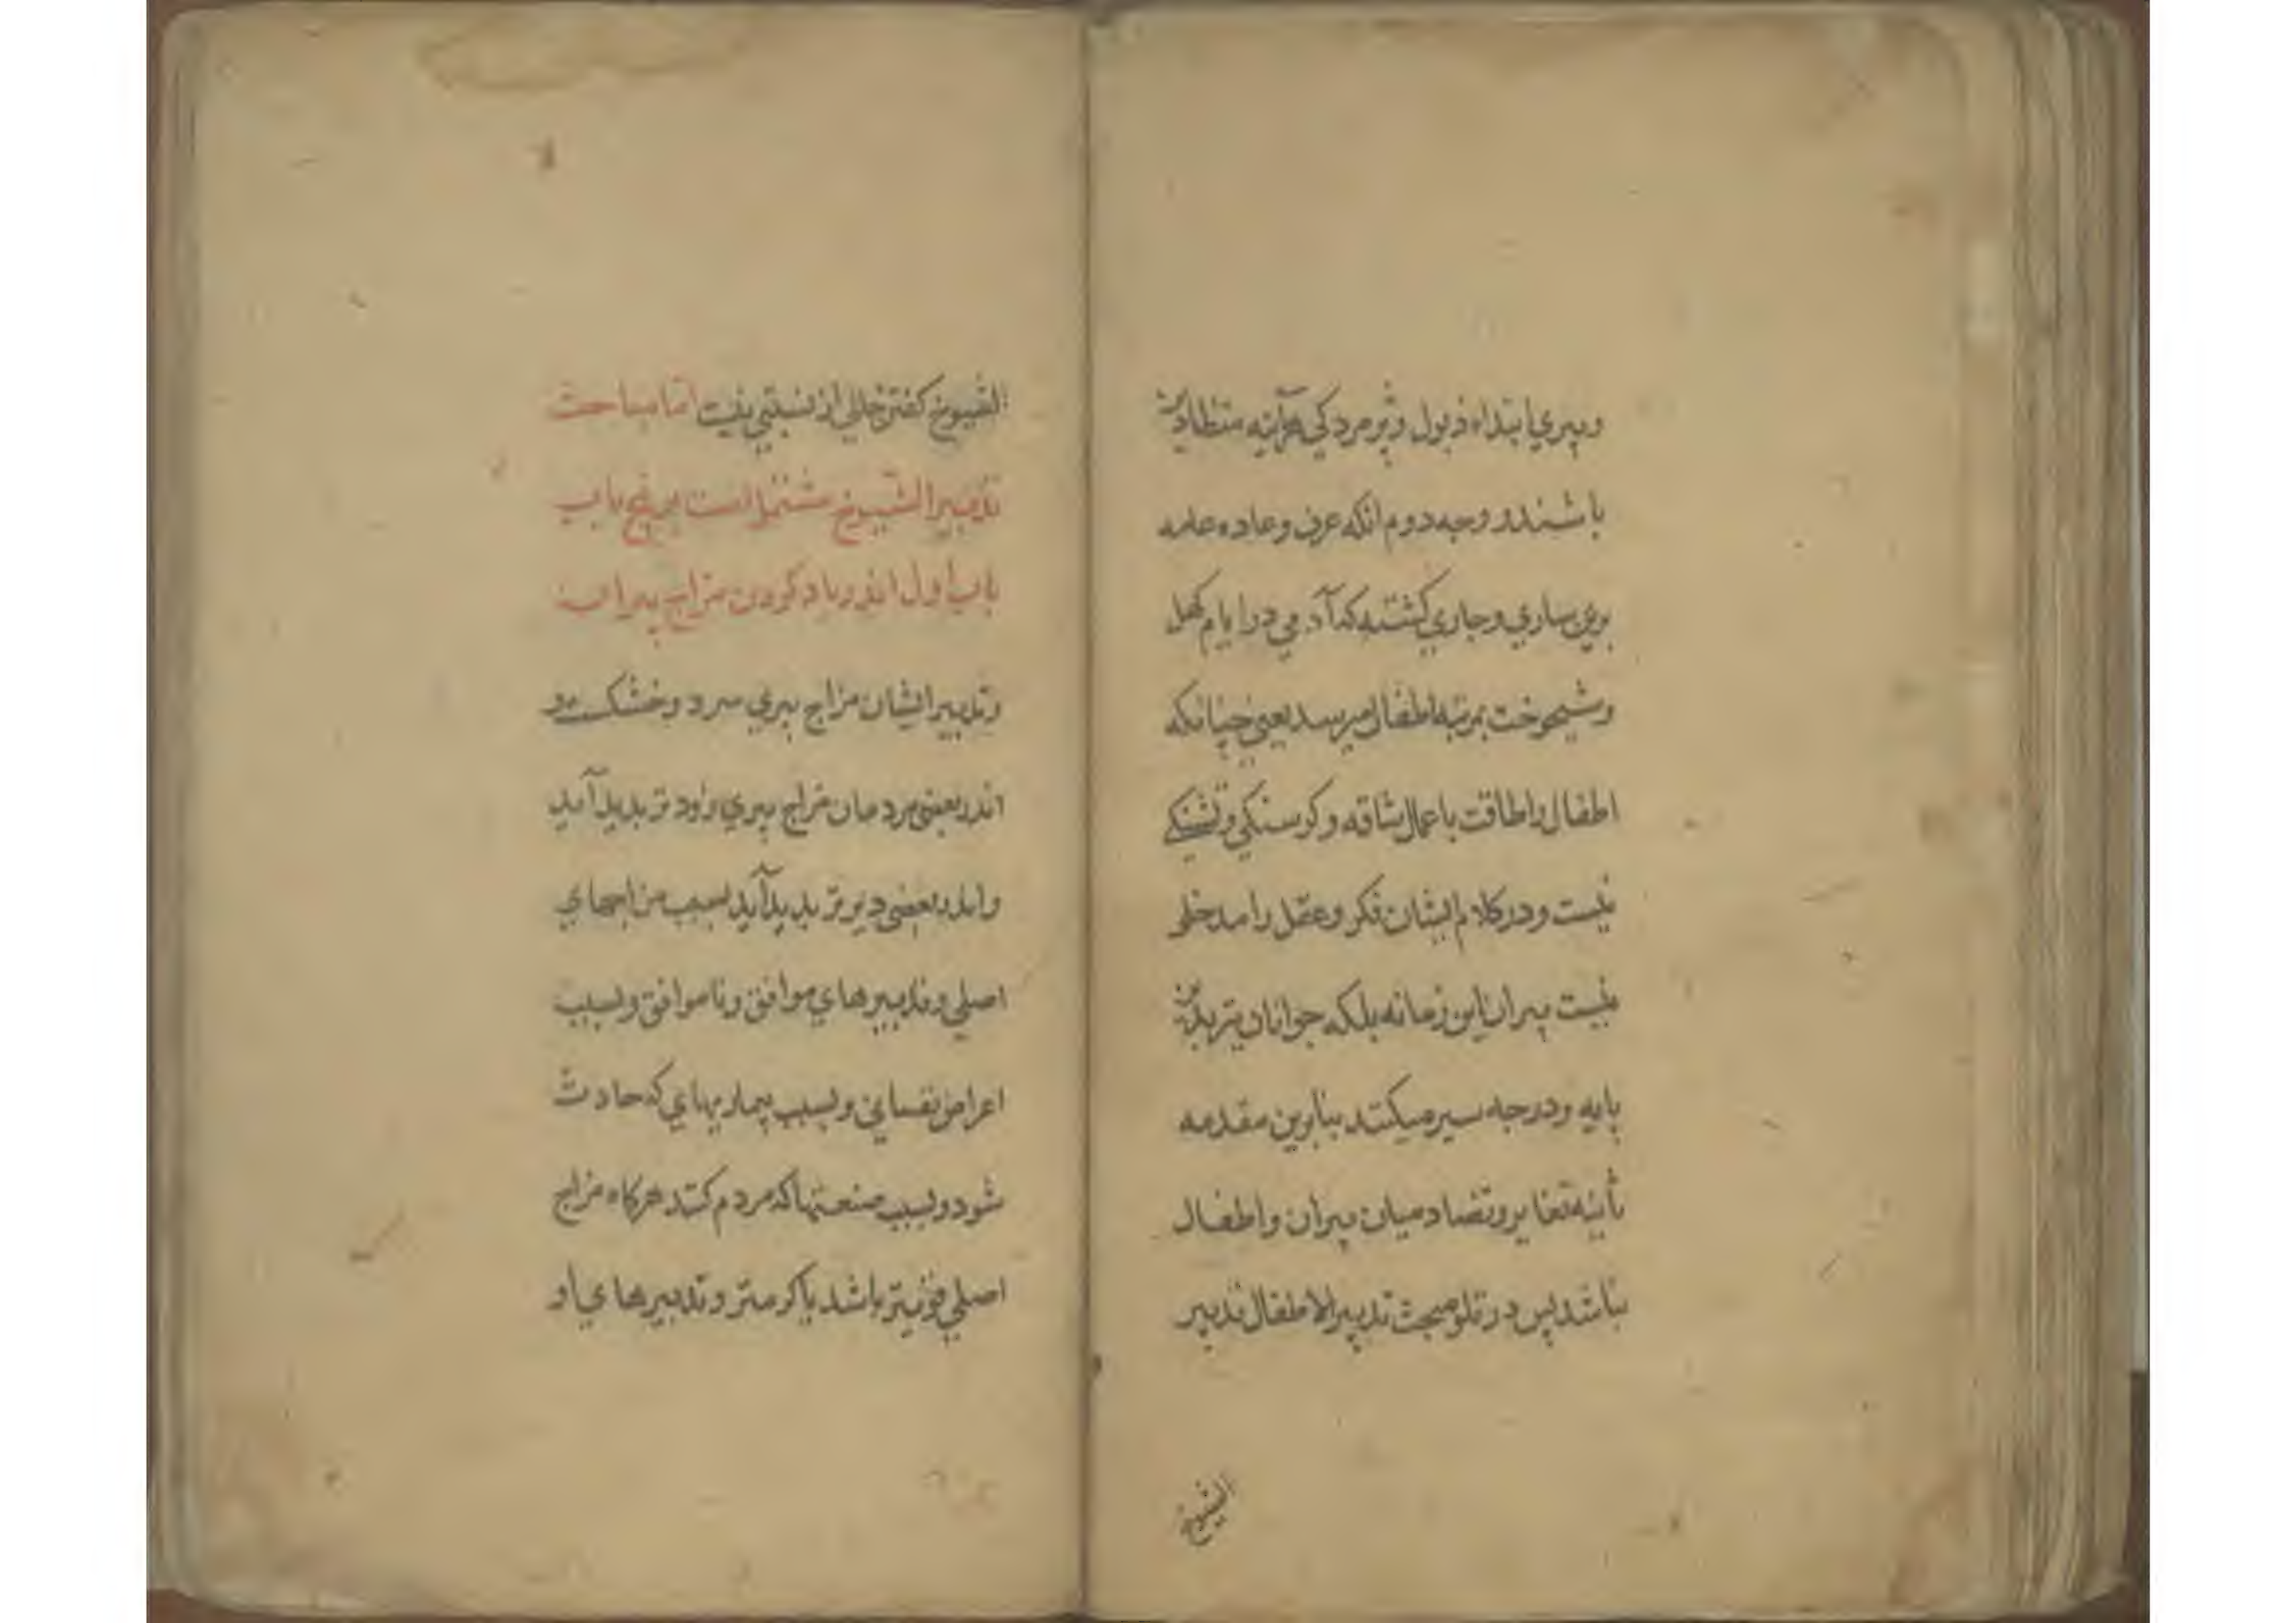 وپیري ابتداء ذبول وپژمردکي هرآینه متظادین
باشند و وجه دوم انکه عرف وعاده عامه
برین ساري وجاري کشته که آدمي در ایام کهل
وشیخوخت بمرتبه اطفال میرسد یعني چنانکه
اطفال را طاقت باعمال شاقه وکرسنکي وتشنکي
نیست ودر کلام ایشان فکر وعقل را مدخلي
نیست پیران این زمانه بلکه جوانان نیز بدین
پایه ودرجه سیر میکنند بنابرین مقدمه
ثانیه تغایر وتضاد میان پیران واطفال
نباشد پس در تلو مبحث تدبیر الاطفال تدبیر
الشیوخ
الشیوخ کفتن خالي از نسبتي نیست اما مباحث
تدبیر الشیوخ مشتمل است بر پنج باب
باب اول اندر یاد کردن مزاج پیران
وتدبیر ایشان مزاج پیري سرد وخشکست و
اندر بعضي مردمان مزاج پیري زود تر پدید آید
واندر بعضي دیر تر پدید آید بسبب مزاجهاي
اصلي وتدبیرهاي موافق وناموافق وبسبب
اعراض نفساني وبسبب بیماریهاي که حادث
شود وبسبب صنعتها که مردم کنند هرکاه مزاج
اصلي قویتر باشد یا کرمتر وتدبیرهاي او